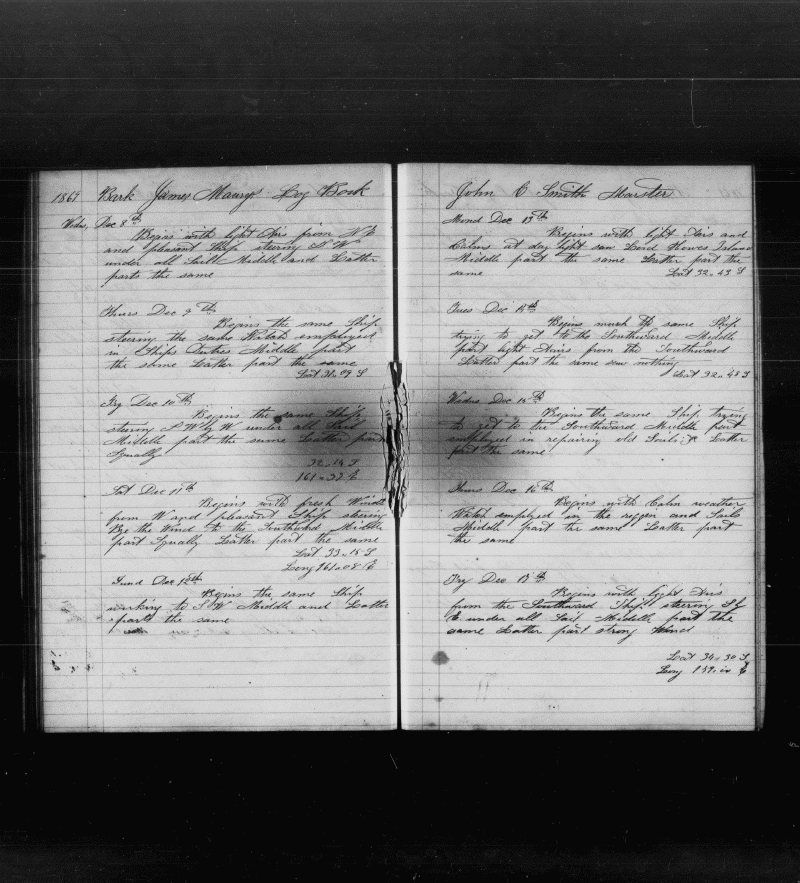 1869 Bark James Maury's Log Book
Wedns, Dec 8th
Begins with light Airs from N E
and pleasant Ship steering S W
under all Sail Middle and Latter
parts the same
Thurs Dec 9th
Begins the same Ship
steering the same Watch employed
in Ships Duties Middle part
the same Latter part the same
Lat 31.09 S
Fry Dec 10th
Begins the same Ship
steering S W by W under all Sail
Middle part the same Latter part
Squally
32.14 S
161.37 E
Sat Dec 11th
Begins with fresh Winds
from W and pleasant Ship steering
Bye the Wind to the Southward Middle
part Squally Latter part the same
Lat 33.15 S
Long 161.08 E
Sund Dec 12th
Begins the same Ship
working to S W Middle and Latter
parts the same
John C Smith Master
Mond Dec 13th
Begins with light Airs and
Calms at day light saw Lord Howes Island
Middle part the same Latter part the
same Lat 32.43 S
Tues Dec 14th
Begins much the same Ship
trying to get to the Southward Middle
part light Airs from the Southward
Latter part the same saw nothing
Lat 32.48 S
Wedns Dec 15th
Begins the same Ship trying
to get to the Southward Middle part
employed in repairing old Sails Latter
part the same
Thurs Dec 16th
Begins with Calm weather
Watch employed in the riggen and Sails
Middle part the same Latter part
the same
Fry Dec 17th
Begins with light Airs
from the Southward Ship steering S
E under all Sail Middle part the
same Latter part strong Wind
Lat 34.30 S
Long 159. E